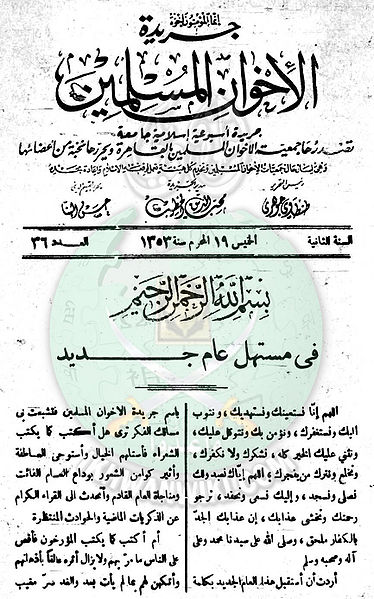 إنما المؤمنون إخوة
جريدة
الاخوان المسلمين
جريدة أسبوعية إسلامية جامعة
تصدرها جمعية الاخوان المسلمين بالقاهرة ويحررها نخبة من أعضائها
وهى لسان حال جمعيات الاخوان المسلمين وتخدم كل هيئة تعمل لخدمة الاسلام وإعادة مجده
رئيس التحرير مدير الجريدة
طنطاوى جوهرى محب الدين الخطيب حسن البنا
السنة الثانية الخميس ١٩ المحرم سنة ١٣٥٣ العدد ٣٦
بسم الله الرحمن الرحيم
فى مستهل عام جديد
اللهم إنا نستعينك ونستهديك ، ونتوب
اليك ونستغفرك ، ونؤمن بك ونتوكل عليك ،
ونثنى عليك الخير كله ، نشكرك ولا نكفرك ،
ونخلع ونترك من يفجرك ، واللهم إياك نعبد ولك
نصلى ونسجد ، وإليك نسعى ونحفد ، نرجو
رحمتك ونخشى عذابك ، إن عذابك الجد
بالكفار ملحق ، وصلى الله على سيدنا محمد وعلى
آله وصحبه وسلم
أردت أن أستقبل هذا العام الجديد بكلمة
باسم جريدة الاخوان المسلمين فتشعبت بى
مسالك الفكر ترى هل أكتب كما يكتب
الشعراء فأستلهم الخيال وأستوحى العاطفة
وأثير كوامن الشعور بوداع العام الفائت
ومناجاة العام القادم وأتحدث الى القراء الكرام
عن الذكريات الماضية والحوادث المنتظرة
أم أكتب كما يكتب المؤرخون فأقص
على الناس ما مر بهم ولا يزال أثره عالقاً بأذهانهم
وأتكهن لهم بما لم يأت بعد والغد سر مغيب